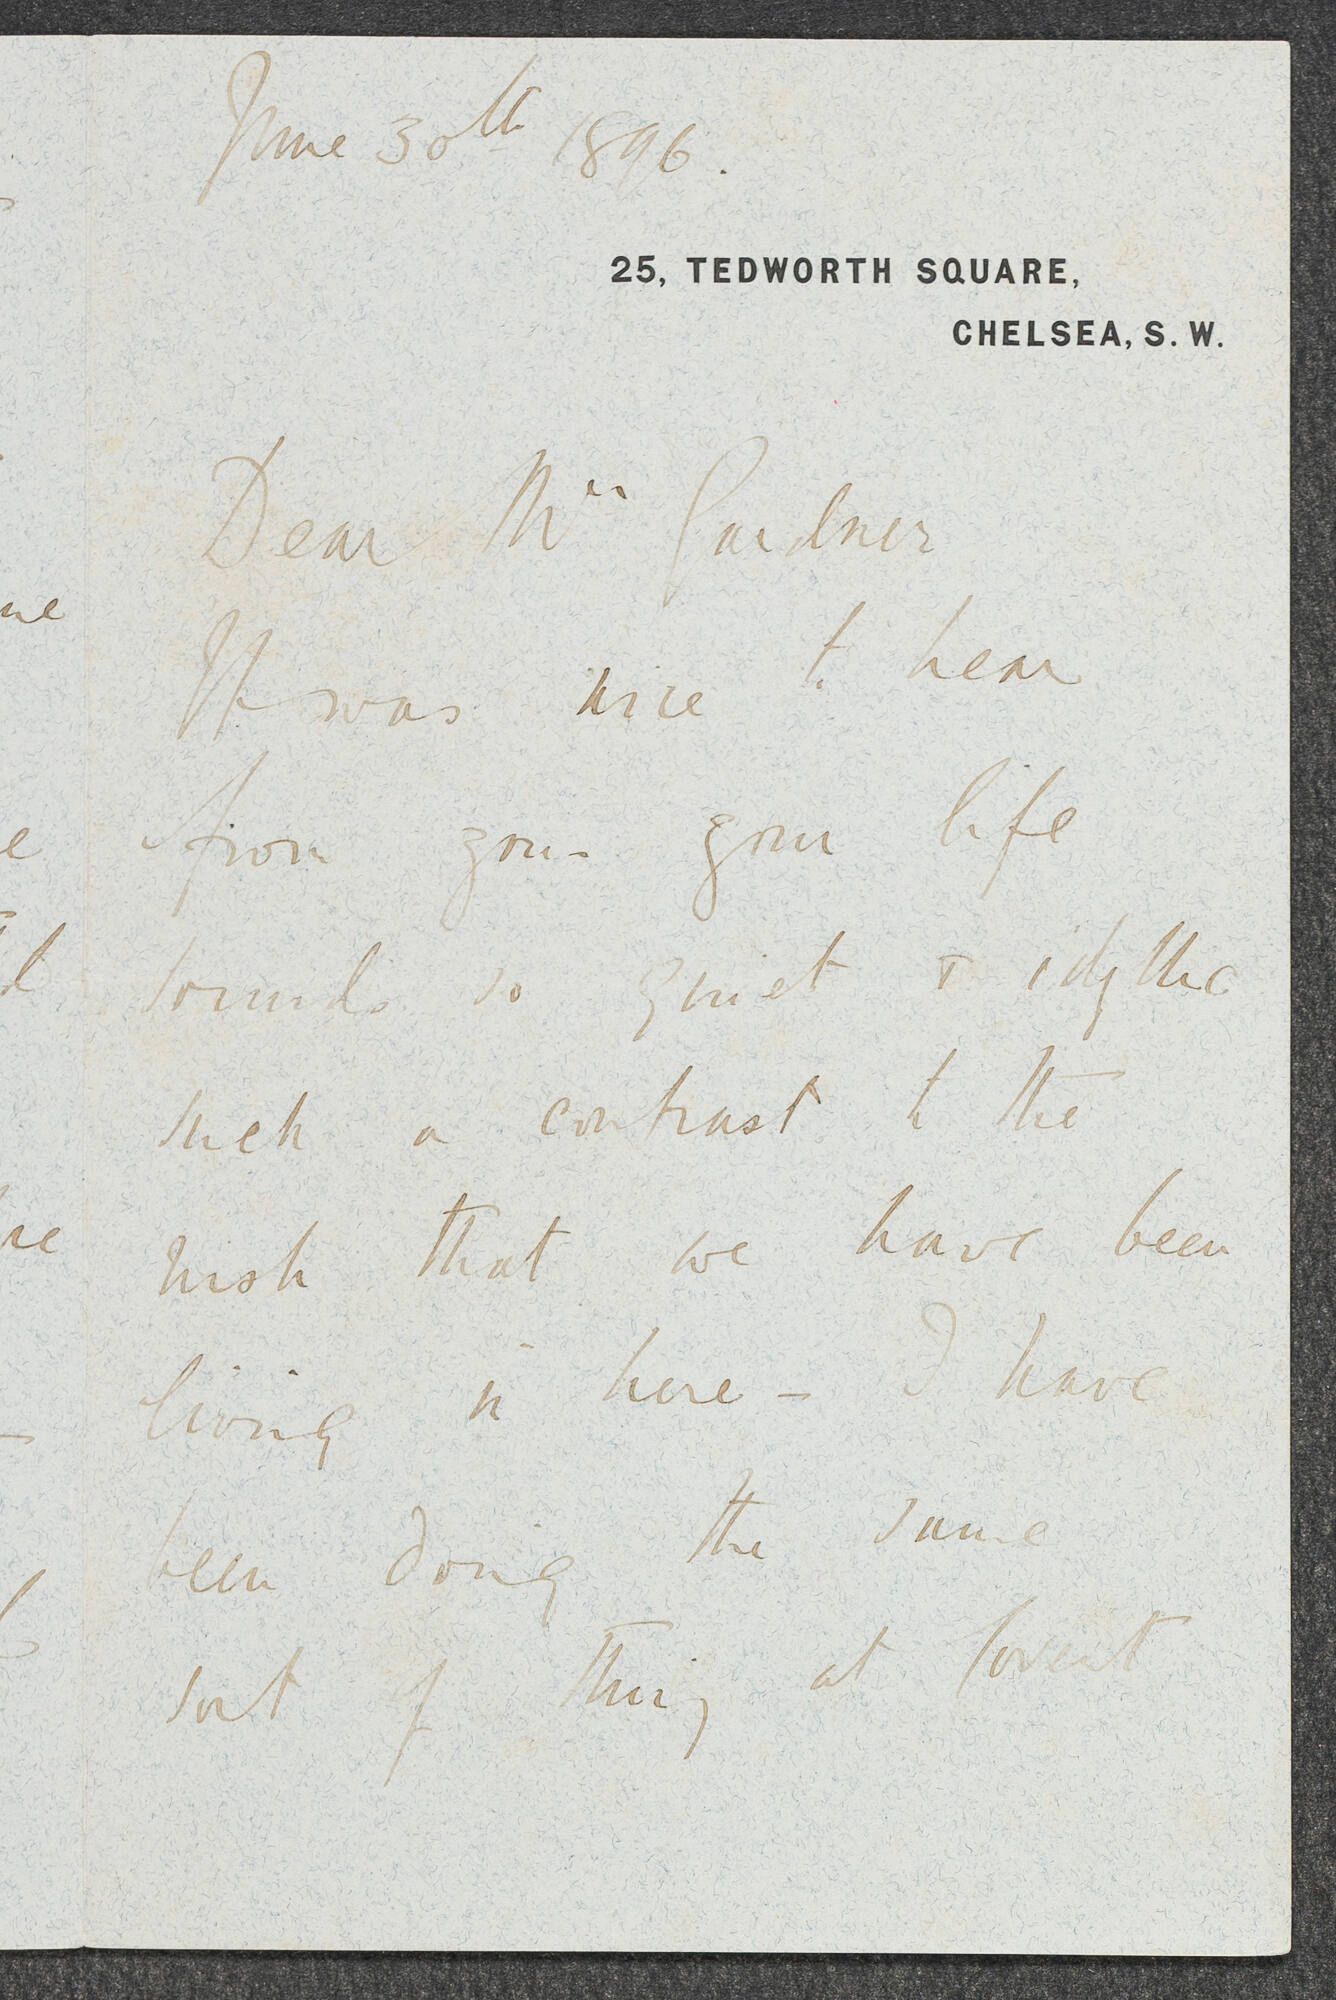 June 30th 1896.
25, TEDWORTH SQUARE,
CHELSEA, S. W.
Dear Mrs Gardner
It was nice to hear
from you - your life
sounds so quiet & idyllic
such a contrast to the
rush that we have been
living in here - I have
been doing the same
sort of thing at Covent